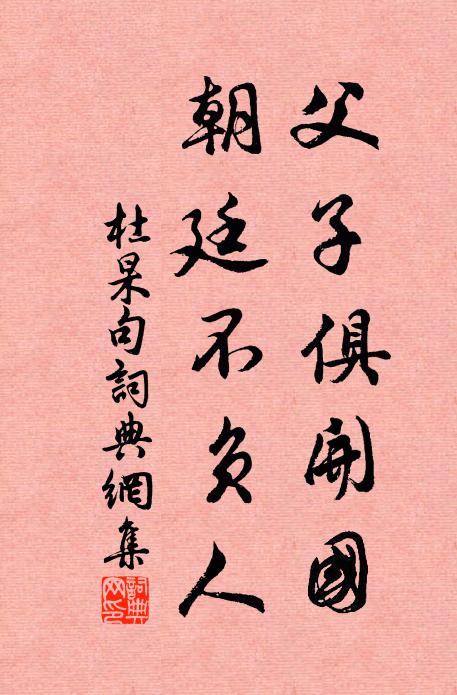 父子俱開國
朝廷不負人
杜杲句詞典網集
詞典
网印